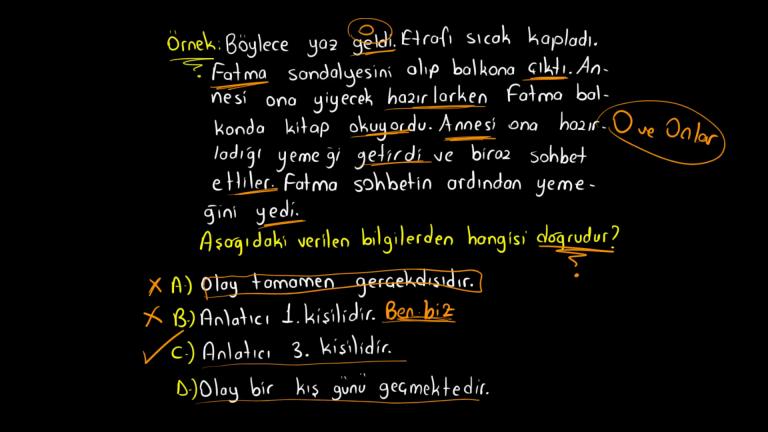 Örnek: Böylece yaz geldi. Etrafı sıcak kapladı.
O
? Fatma sandalyesini alıp balkona çıktı. An-
nesi ona yiyecek hazırlarken Fatma bal-
konda kitap okuyordu. Annesi ona hazır-
O ve Onlar
ladığı yemeği getirdi ve biraz sohbet
ettiler. Fatma sohbetin ardından yeme-
ğini yedi.
Aşağıdaki verilen bilgilerden hangisi doğrudur?
?
A.) Olay tamamen gerçekdışıdır.
B.) Anlatıcı 1. kişilidir. Ben-biz
C.) Anlatıcı 3. kişilidir.
D.) Olay bir kış günü geçmektedir.